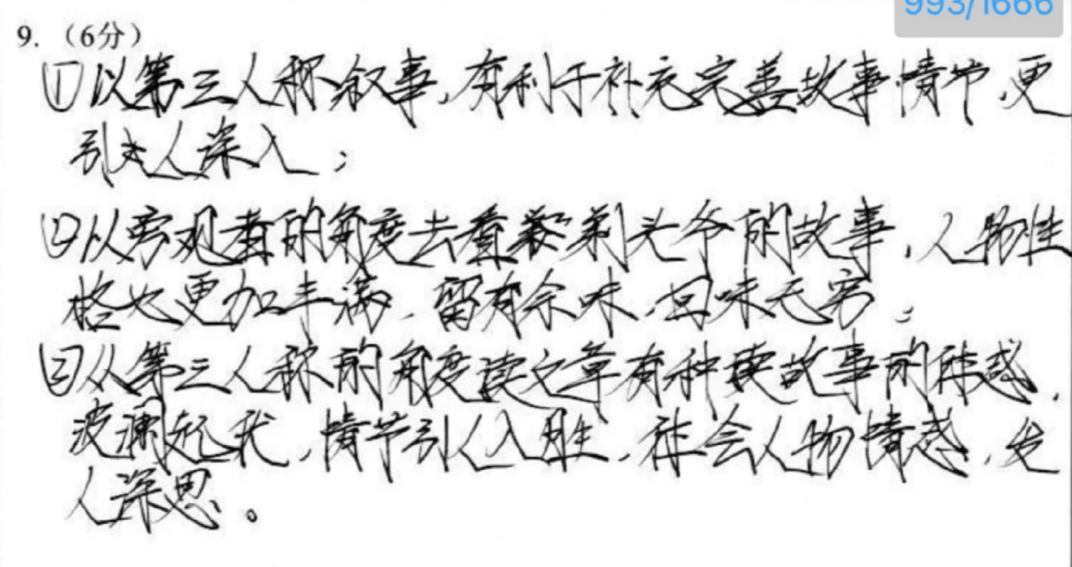 993/1666
9. （6分）
①以第三人称叙事,有利于补充完善故事情节,更
引人深入；
②以旁观者的角度去看剃头爷的故事,人物性
格也更加丰满,留有余味,回味无穷；
③从第三人称的角度读文章有种读故事的体感,
波澜起伏,情节引人入胜,体会人物情感,发
人深思。